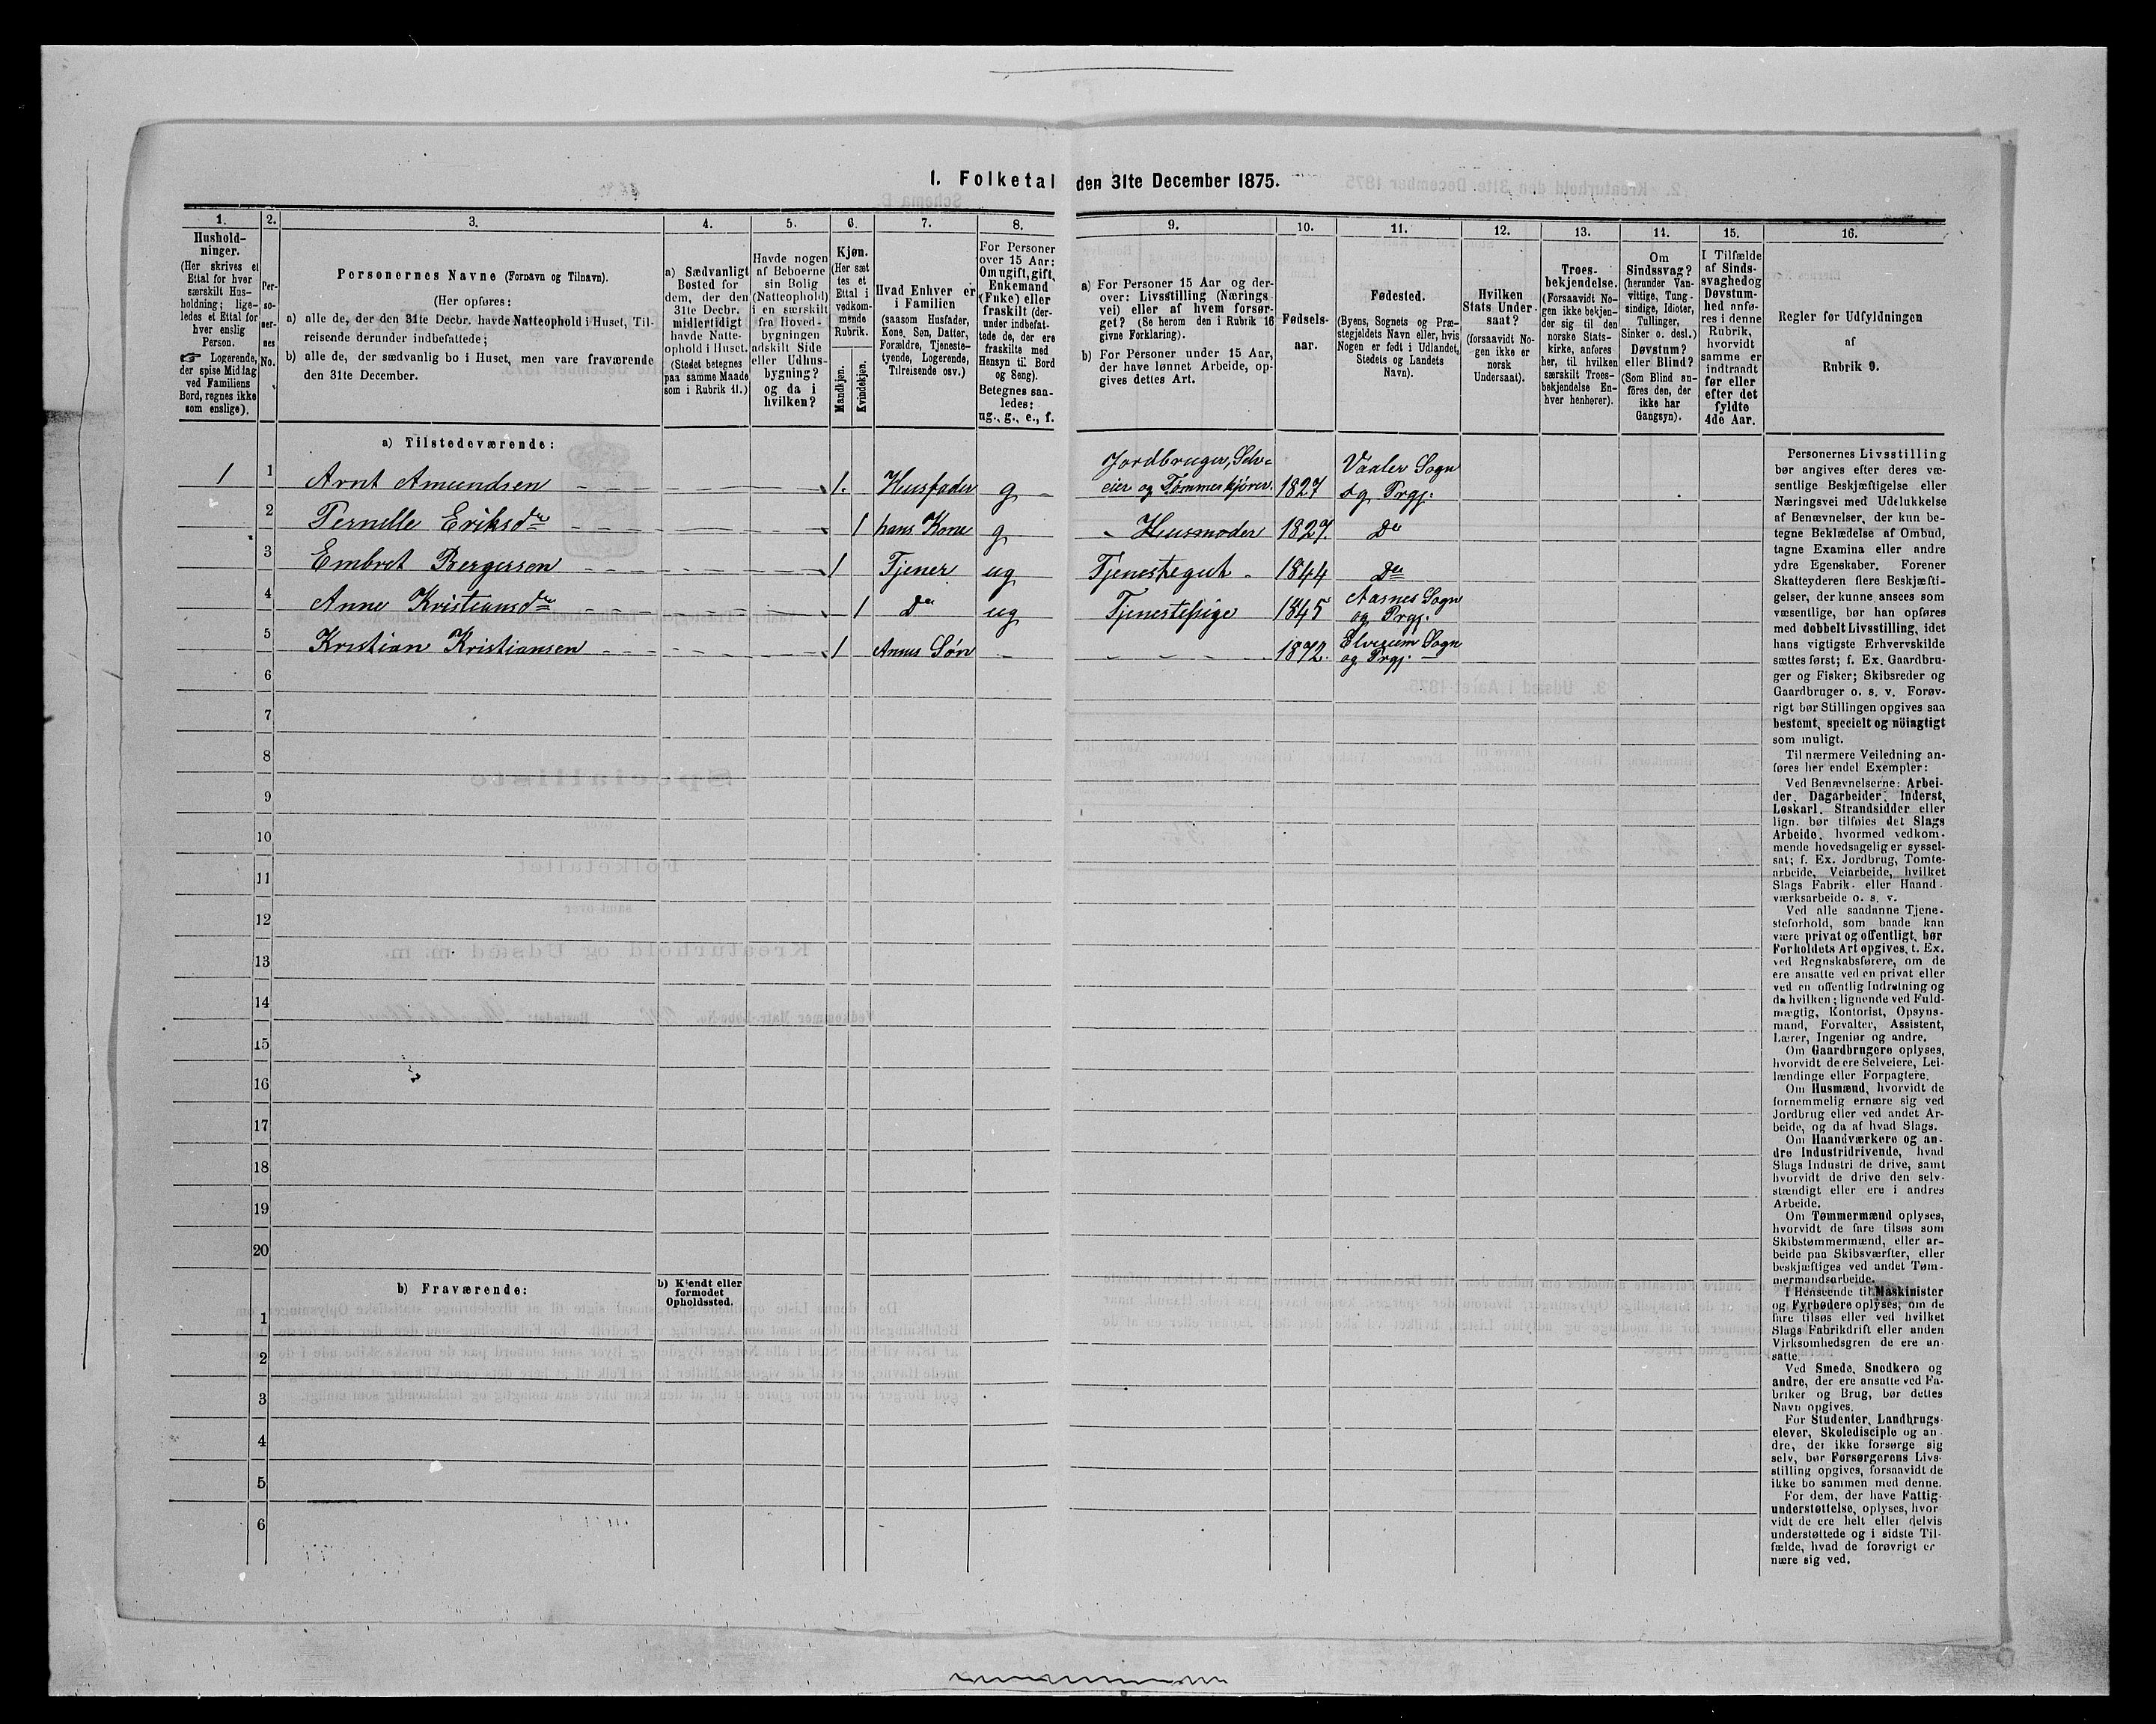 1. Folketal den 31te December 1875.
1.
2.
3.
4.
5.
6.
7.
8.
9.
10.
11.
12.
13.
14.
15.
16.
Hushold-
ninger.
(Her skrives et
Ettal for hver
særskilt Hus-
holdning; lige-
ledes et Ettal for
hver enslig
Person.
☞ Logerende,
der spise Middag
ved Familiens
Bord, regnes ikke
som enslige).
Per-
so-
ner-
nes
No.
Personernes Navne (Fornavn og Tilnavn).
(Her opføres:
a) alle de, der den 31te Decbr. havde Natteophold i Huset, Til-
reisende derunder indbefattede;
b) alle de, der sædvanlig bo i Huset, men vare fraværende
den 31te December.
a) Sædvanligt
Bosted for
dem, der den
31te Decbr.
midlertidigt
havde Natte-
ophold i Huset.
(Stedet betegnes
paa samme Maade
som i Rubrik 11.)
Havde nogen
af Beboerne
sin Bolig
(Natteophold)
i en særskilt
fra Hoved-
bygningen
adskilt Side
eller Udhus-
bygning?
og da i
hvilken?
Kjøn.
(Her sæt
tes et
Ettal i
vedkom-
mende
Rubrik.
Mandkjøn.
Kvindekjøn.
Hvad Enhver er
i Familien
(saasom Husfader,
Kone, Søn, Datter,
Forældre, Tjeneste-
tyende, Logerende,
Tilreisende osv.)
For Personer
over 15 Aar:
Om ugift, gift,
Enkemand
(Enke) eller
fraskilt (der-
under indbefat-
tede de, der ere
fraskilte med
Hensyn til Bord
og Seng).
Betegnes saa-
ledes:
ug., g., e., f.
a) For Personer 15 Aar og der-
over: Livsstilling (Nærings
vei) eller af hvem forsør-
get? (Se herom den i Rubrik 16
givne Forklaring).
b) For Personer under 15 Aar,
der have lønnet Arbeide, op-
gives dettes Art.
Fødsels-
aar.
Fødested.
(Byens, Sognets og Præ-
stegjeldets Navn eller, hvis
Nogen er født i Udlandet,
Stedets og Landets
Navn).
Hvilken
Stats Under-
saat?
(forsaavidt No-
gen ikke er
norsk
Undersaat).
Troes-
bekjendelse.
(Forsaavidt No-
gen ikke bekjen-
der sig til den
norske Stats-
kirke, anføres
her, til hvilken
særskilt Troes-
bekjendelse En-
hver henhører).
Om
Sindssvag?
(herunder Van-
vittige, Tung-
sindige, Idioter,
Tullinger,
Sinker o. desl.)
Døvstum?
eller Blind?
(Som Blind an-
føres den, der
ikke har
Gangsyn).
I Tilfælde
af Sinds-
svaghed og
Døvstum-
hed anfø-
res i denne
Rubrik,
hvorvidt
samme er
indtraadt
før eller
efter det
fyldte
4de Aar.
Regler for Udfyldningen
af
Rubrik 9.
a) Tilstedeværende:
1 1 Arnt Amundsen 1. Husfader g Jordbruger, Selv-
eier og Tømmerkjører. 1827 Vaaler Sogn
og Prgj.
2 Pernille Eriksdr 1 hans Kone g Husmoder 1827. Do
3 Embret Bergersen 1 Tjener ug Tjenestegut 1844 Do
4 Anne Kristiansdr 1 Do ug Tjenestepige 1845 Aasnes Sogn
og Prgj.
5 Kristian Kristiansen 1 Annes Søn 1872. Elverum Sogn
og Prgj.
6
7
8
9
10
11
12
13
14
15
16
17
18
19
20
b) Fraværende:
b) Kjendt eller
formodet
Opholdssted.
1
2
3
4
5
6
Personernes Livsstilling
bør angives efter deres væ-
sentlige Beskjæftigelse eller
Næringsvei med Udelukkelse
af Benævnelser, der kun be-
tegne Beklædelse af Ombud,
tagne Examina eller andre
ydre Egenskaber. Forener
Skatteyderen flere Beskjæfti-
gelser, der kunne ansees som
væsentlige, bør han opføres
med dobbelt Livsstilling, idet
hans vigtigste Erhvervskilde
sættes først; f. Ex. Gaardbru-
ger og Fisker; Skibsreder og
Gaardbruger o. s. v. Forøv-
rigt bør Stillingen opgives saa
bestemt, specielt og nöiagtigt
som muligt.
Til nærmere Veiledning an-
føres her endel Exempler:
Ved Benævnelserne: Arbei-
der, Dagarbeider, Inderst,
Løskarl, Strandsidder eller
lign. bør tilføies det Slags
Arbeide, hvormed vedkom-
mende hovedsagelig er syssel-
sat; f. Ex. Jordbrug, Tomte-
arbeide, Veiarbeide, hvilket
Slags Fabrik- eller Haand-
værksarbeide o. s. v.
Ved alle saadanne Tjene-
steforhold, som baade kan
være privat og offentligt, bør
Forholdets Art opgives, t. Ex.
ved Regnskabsførere, om de
ere ansatte ved en privat eller
ved en offentlig Indretning og
da hvilken; lignende ved Fuld-
mægtig, Kontorist, Opsyns-
mand, Forvalter, Assistent,
Lærer, Ingeniør og andre.
Om Gaardbrugere oplyses,
hvorvidt de ere Selveiere, Lei-
lændinge eller Forpagtere.
Om Husmænd, hvorvidt de
fornemmelig ernære sig ved
Jordbrug eller ved andet Ar-
beide, og da af hvad Slags.
Om Haandværkere og an-
dre Industridrivende, hvad
Slags Industri de drive, samt
hvorvidt de drive den selv-
stændigt eller ere i andres
Arbeide.
Om Tømmermænd oplyses,
hvorvidt de fare tilsøs som
Skibstømmermænd, eller ar-
beide paa Skibsværfter, eller
beskjæftiges ved andet Tøm-
mermandsarbeide.
I Henseende til Maskinister
og Fyrbødere oplyses, om de
fare tilsøs eller ved hvilket
Slags Fabrikdrift eller anden
Virksomhedsgren de ere an-
satte.
Ved Smede, Snedkere og
andre, der ere ansatte ved Fa-
briker og Brug, bør dettes
Navn opgives.
For Studenter, Landbrugs-
elever, Skoledisciple og an-
dre, der ikke forsørge sig
selv, bør Forsørgerens Livs-
stilling opgives, forsaavidt de
ikke bo sammen med denne.
For dem, der have Fattig-
understøttelse, oplyses, hvor-
vidt de ere helt eller delvis
understøttede og i sidste Til-
fælde, hvad de forøvrigt er-
nære sig ved.